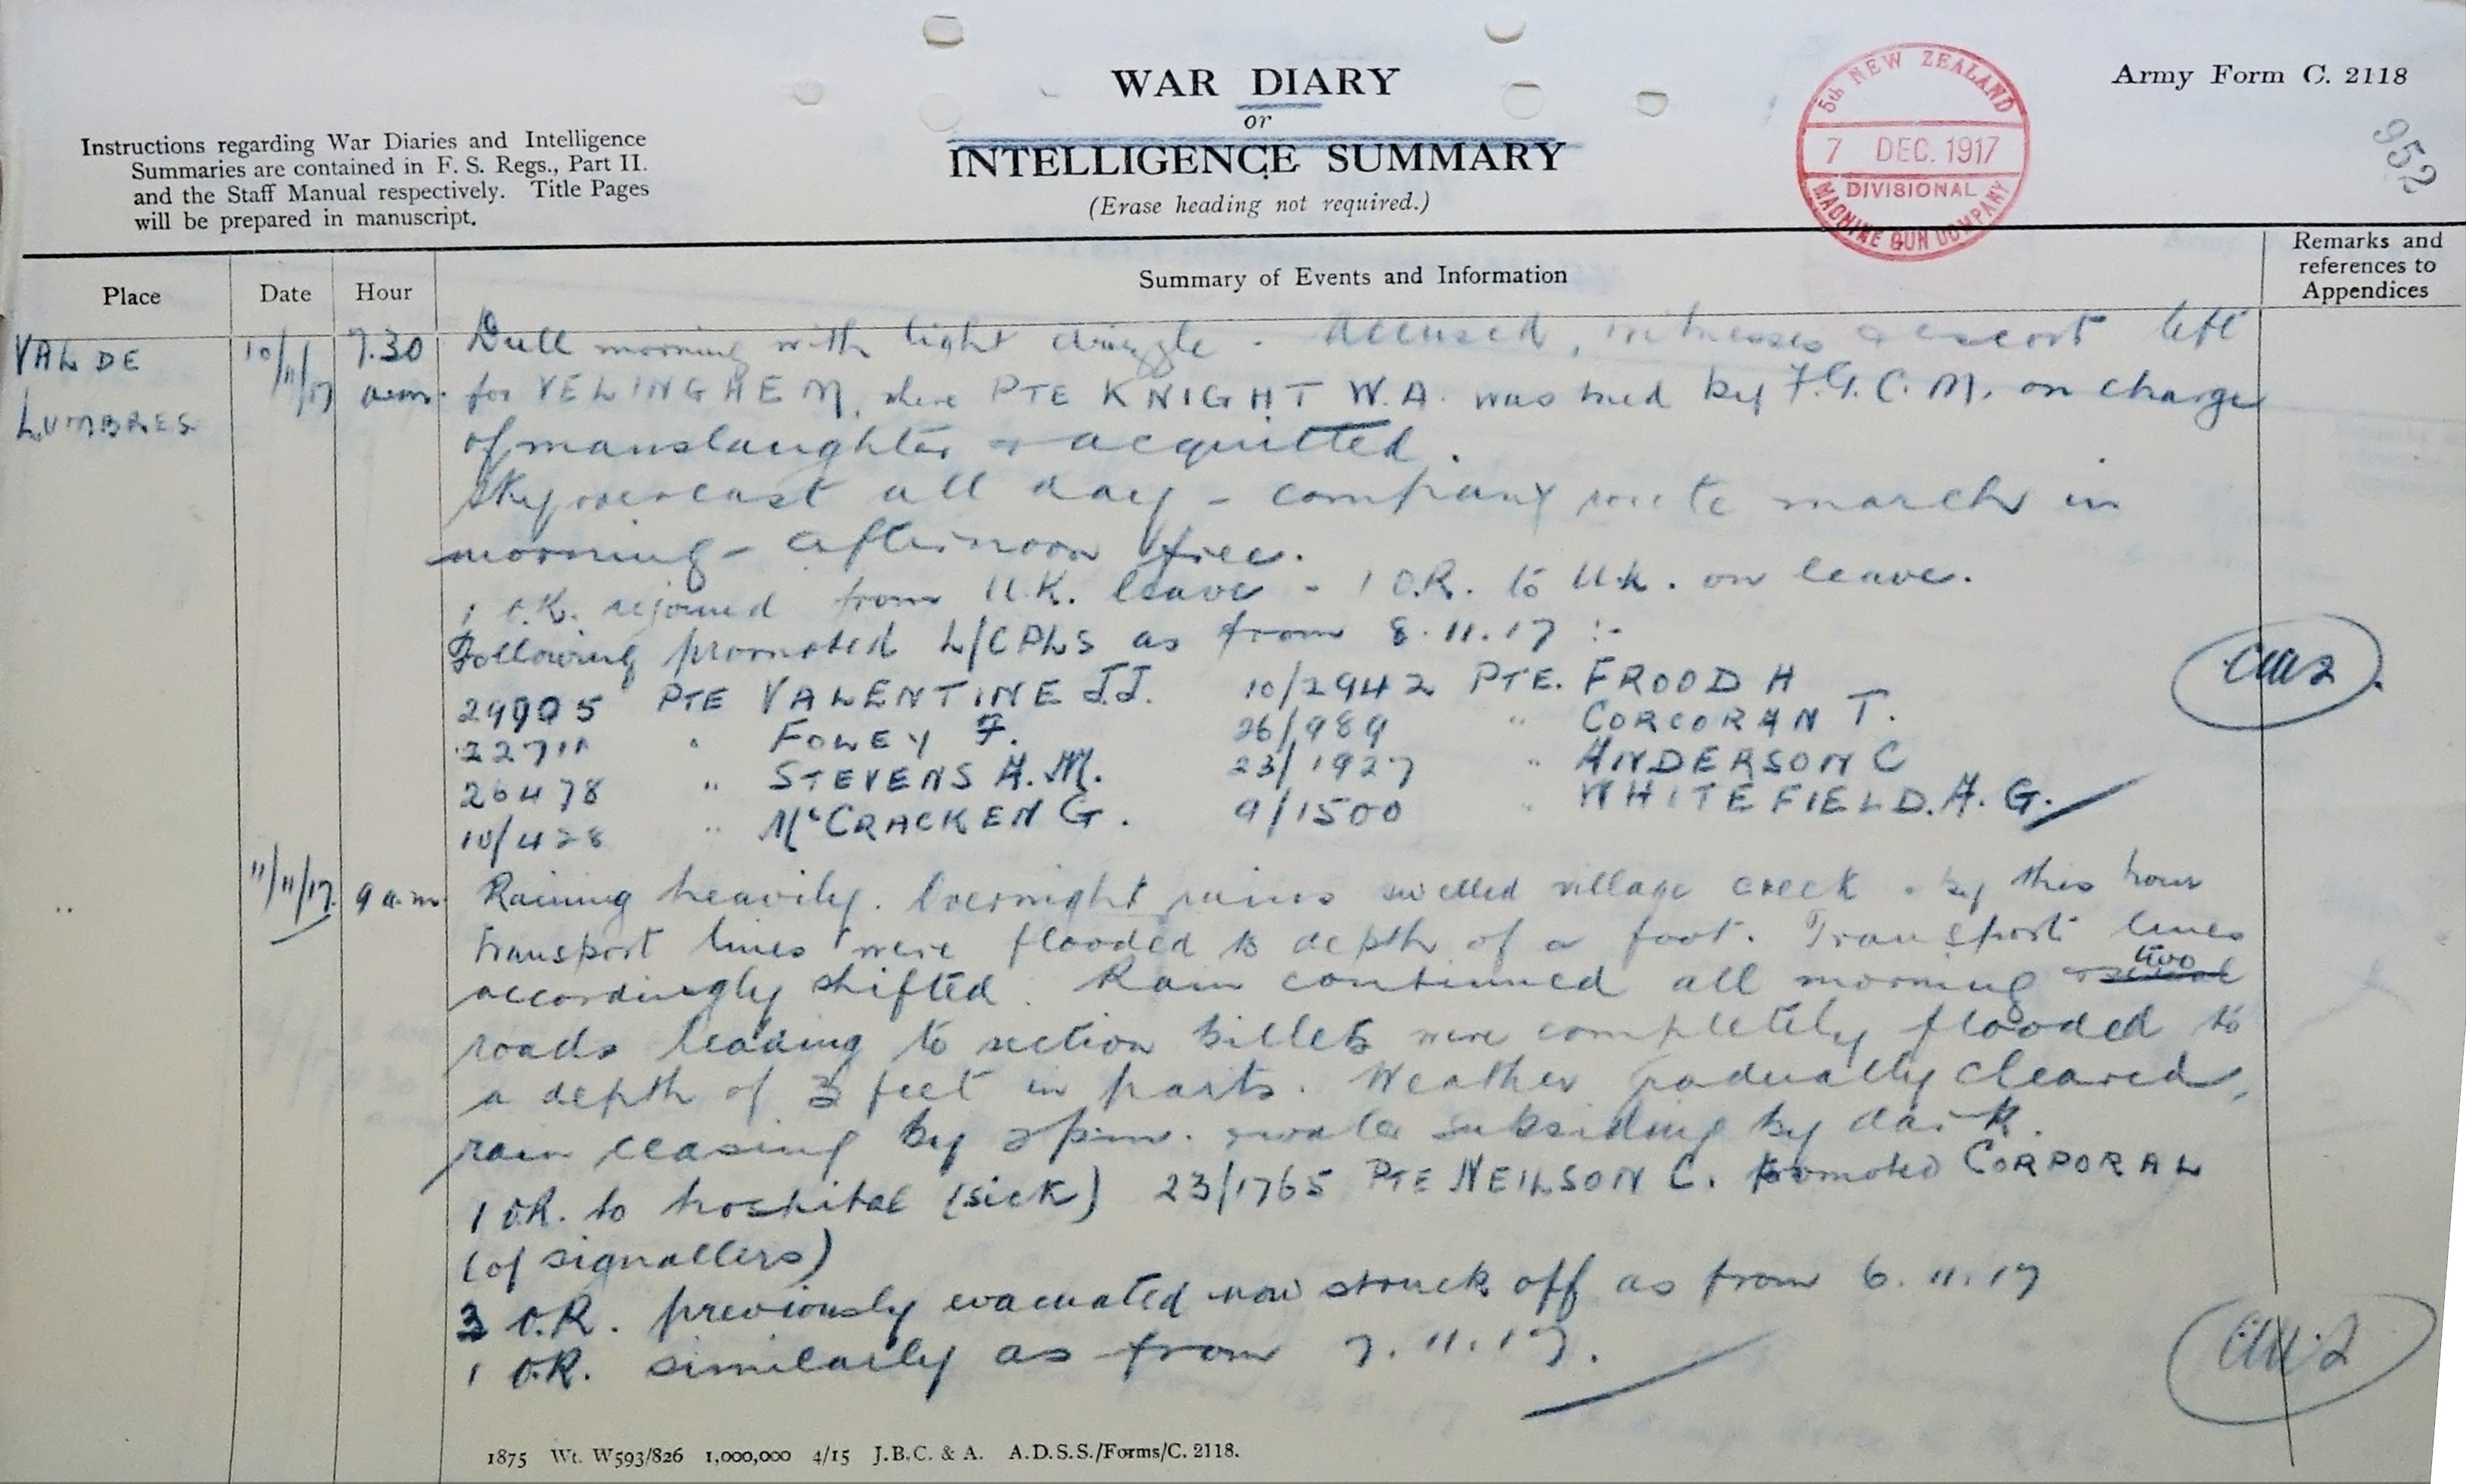 WAR DIARY
or
INTELLIGENCE SUMMARY
(Erase heading not required.)
Army Form C. 2118
952
5th NEW ZEALAND
7 DEC. 1917
DIVISIONAL
MACHINE GUN COMPANY
Instructions regarding War Diaries and Intelligence
Summaries are contained in F. S. Regs., Part II.
and the Staff Manual respectively. Title Pages
will be prepared in manuscript.
Place Date Hour Summary of Events and Information Remarks and references to Appendices
VAL DE 10/11/17 7.30 Dull morning with light drizzle - Accused, witnesses & escort left
LUMBRES a.m. for VELINGHEM, where PTE KNIGHT W.A. was tried by F.G.C.M. on charge
of manslaughter & acquitted.
Sky overcast all day - company route march in
morning - afternoon free.
1 O.R. rejoined from U.K. leave - 1 O.R. to U.K. on leave.
Following promoted L/CPLS as from 8.11.17 :-
29905 PTE VALENTINE J.J. 10/2942 PTE. FROOD H
" FOLEY F. 26/989 " CORCORAN T.
26478 " STEVENS A.M. 23/1927 " ANDERSON C
10/428 " McCRACKEN G. 9/1500 " WHITEFIELD. A. G.
11/11/17. 9 a.m. Raining heavily. Overnight rains swelled village creek & by this hour
transport lines were flooded to depth of a foot. Transport lines
accordingly shifted. Rain continued all morning & several two
roads leading to section billets were completely flooded to
a depth of 3 feet in parts. Weather gradually cleared,
rain ceasing by 2 p.m. & water subsiding by dark.
1 O.R. to hospital (sick) 23/1765 PTE NEILSON C. promoted CORPORAL
(of signallers)
3 O.R. previously evacuated now struck off as from 6.11.17
1 O.R. similarly as from 7.11.17.
1875 Wt. W593/826 1,000,000 4/15 J.B.C. & A. A.D.S.S./Forms/C. 2118.